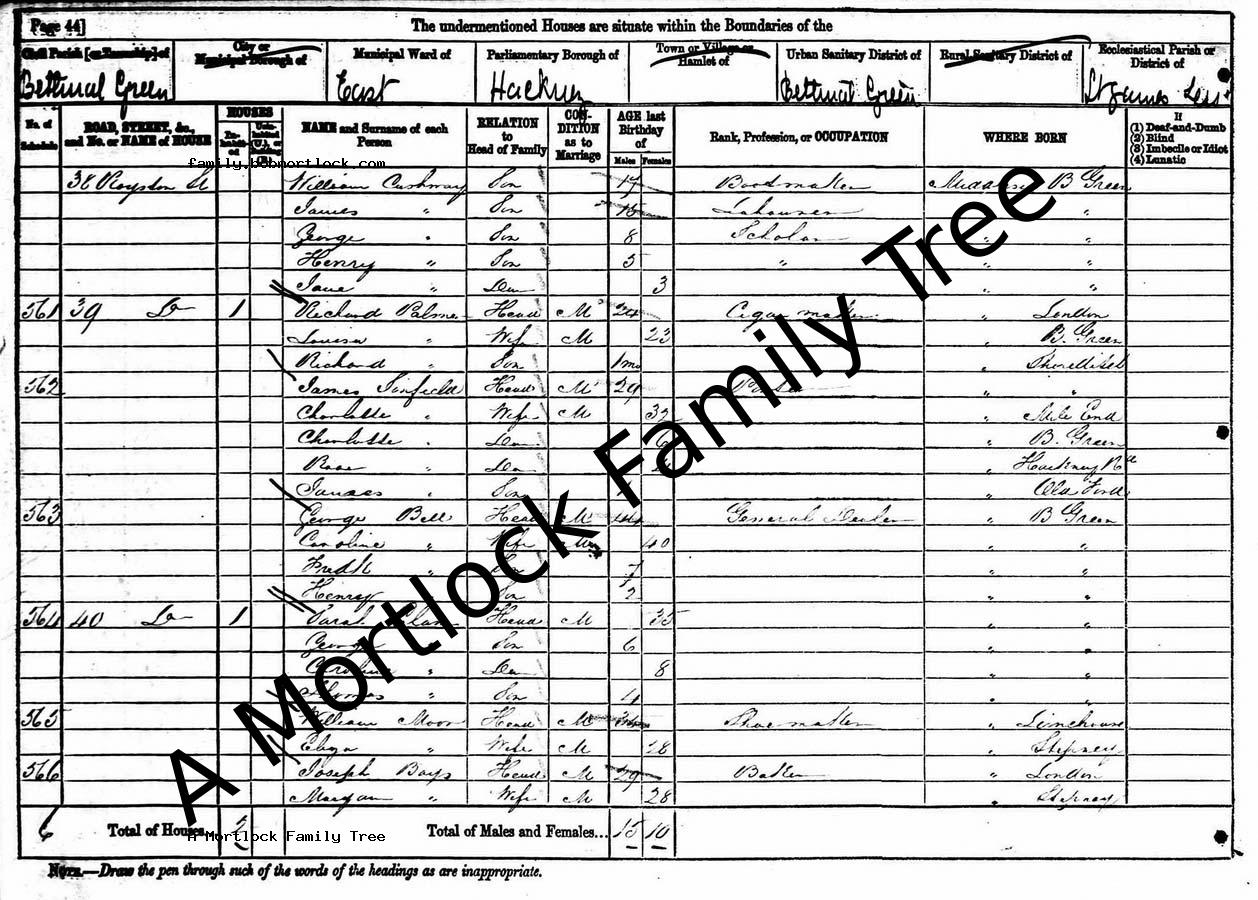 Page 44]
The undermentioned Houses are situate within the Boundaries of the
Civil Parish [or Township] of
City or Municipal Borough of
Municipal Ward of
Parliamentary Borough of
Town or Village or Hamlet of
Urban Sanitary District of
Rural Sanitary District of
Ecclesiastical Parish or District of
Bethnal Green East Hackney Bethnal Green St James
No. of Schedule
ROAD, STREET, &c., and No. or NAME of HOUSE
HOUSES
In-habit-ed
Unin-habited (U.), or Building (B.)
NAME and Surname of each Person
RELATION to Head of Family
CON-DITION as to Marriage
AGE last Birthday of
Males Females
Rank, Profession, or OCCUPATION
WHERE BORN
If
(1) Deaf-and-Dumb
(2) Blind
(3) Imbecile or Idiot
(4) Lunatic
family.bobmortlock.com
38 Royston St William Cushway Son 17 Bootmaker Middlesex B Green
James " Son 15 Labourer " "
George " Son 8 Scholar " "
Henry " Son 5 " " "
Jane " Daur 3 " "
561 39 Do 1 Richard Palmer Head M 24 Cigar maker " London
Louisa " Wife M 23 " B. Green
Richard " Son 1 mo " Shoreditch
562 James Sinfield Head M 29 " "
Charlotte " Wife M 32 " Mile End
Charlotte " Daur 6 " B. Green
Rose " Daur " Hackney Rd
James " Son " Old Ford
563 George Bell Head M 44 General Dealer " B Green
Caroline " Wife M 40 " "
Fredk " Son 7 " "
Henry " Son 2 " "
564 40 Do 1 Sarah Head M 35 " "
George " Son 6 " "
Caroline " Daur 8 " "
Thomas " Son 4 " "
565 William Moor Head M Shoemaker " Limehouse
Eliza " Wife M 28 " Stepney
566 Joseph Bays Head M 29 Baker " London
" Wife M 28 " Stepney
6 Total of Houses 2 Total of Males and Females... 15 10
A Mortlock Family Tree
NOTE.—Draw the pen through such of the words of the headings as are inappropriate.
A Mortlock Family Tree